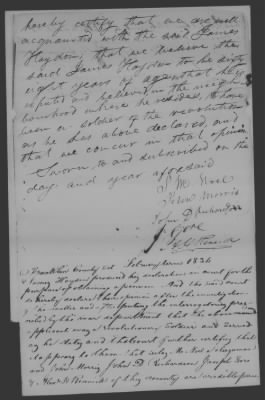 hereby certify that we are well
acquainted with the said James
Haydon; that we believe the
said James Haydon to be sixty
eight years of age that he is
reputed and believed in the neigh
bourhood where he resided, to have
been a soldier of the revolution
as he has above declared, and
that we concur in that opinion
Sworn to and subscribed on the
day and year aforesaid
John Morris
John D Richardson
J. Gore
Franklin County Sct February term 1834
James Haydon produced his declaration in court for the
purpose of obtaining a pension And the said court
do hereby declare their opinion after the
of the matter and after putting the interrogatories pres
cribed by the war department that the above named
applicant was a revolutionary soldier and served
as he states and the court further certifies that
it appears to them that
and John Morris John D Richardson Joseph Gore
of this county are credible persons